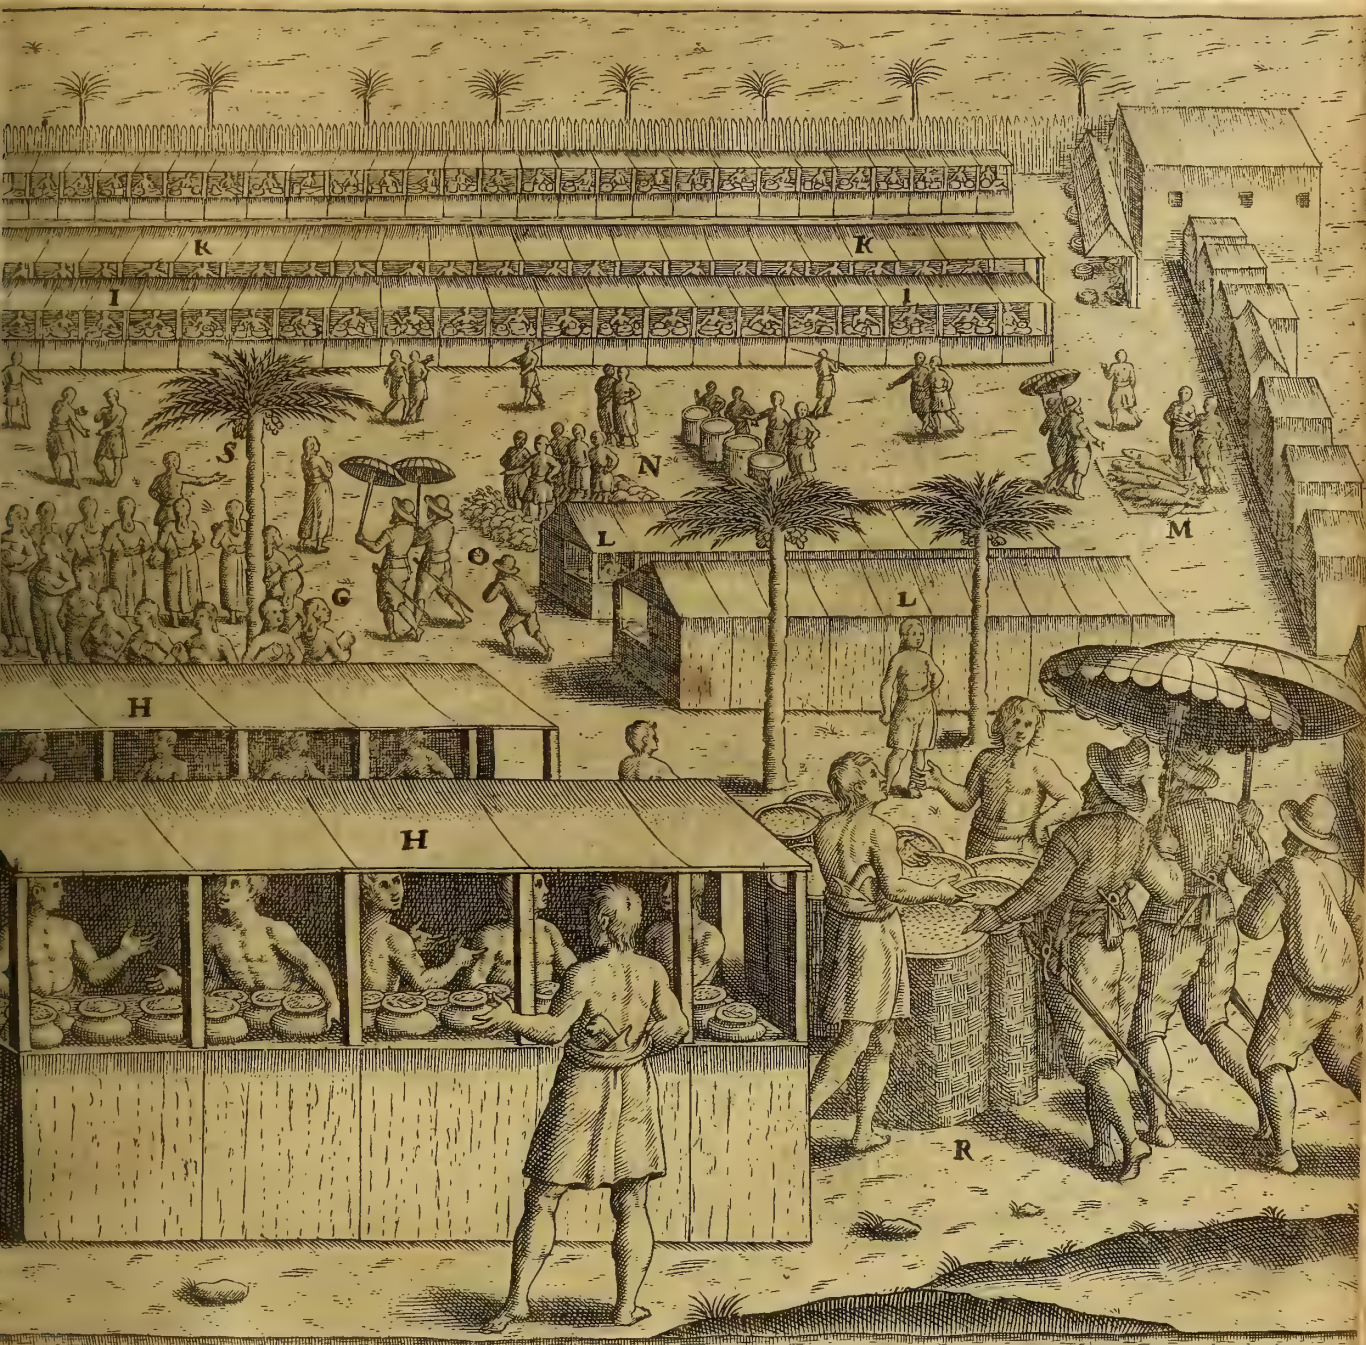 K K
I I
S
N
M
L
O
G
L
H
H
R